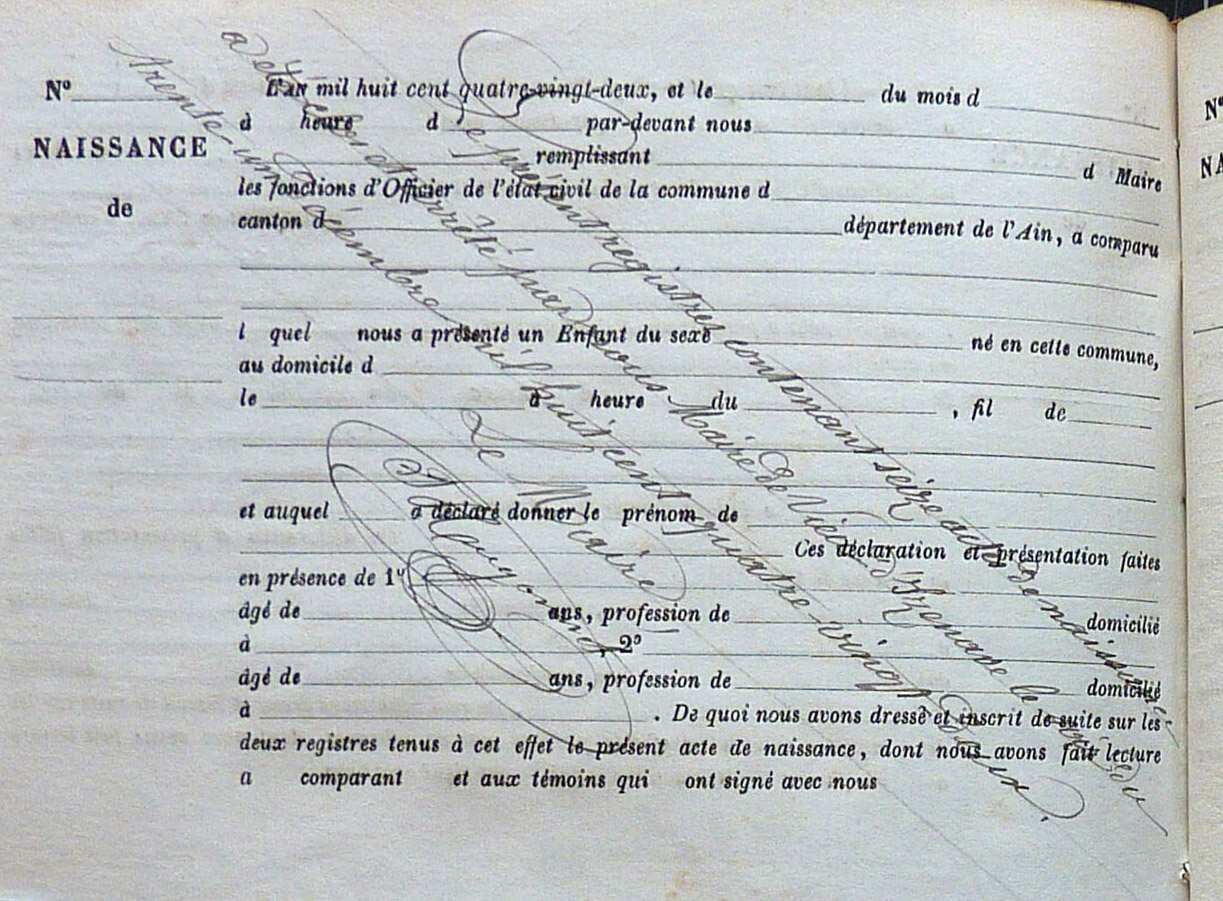 N° L'an mil huit cent quatre-vingt-deux, et le du mois d
à heure d par-devant nous
NAISSANCE remplissant d Maire
les fonctions d'Officier de l'état civil de la commune d
de canton d département de l'Ain, a comparu
l quel nous a présenté un Enfant du sexe né en cette commune,
au domicile d
le à heure du , fil de
et auquel a déclaré donner le prénom de
Ces déclaration et présentation faites
en présence de 1°
âgé de ans, profession de domicilié
à , 2°
âgé de ans, profession de domicilié
à . De quoi nous avons dressé et inscrit de suite sur les
deux registres tenus à cet effet le présent acte de naissance, dont nous avons fait lecture
a comparant et aux témoins qui ont signé avec nous
Le présent registre contenant seize actes de naissance
a été clos et arrêté par nous Maire de Vieu d'Izenave le
trente-un décembre mil huit cent quatre-vingt deux.
Le Maire
N°